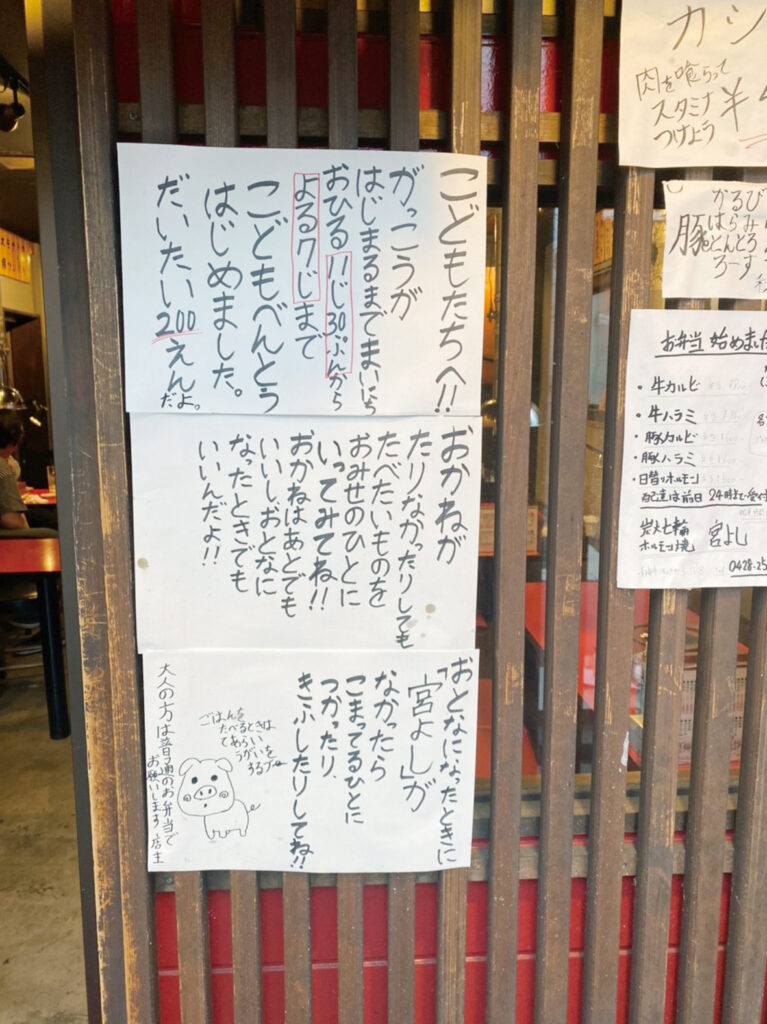 こどもたちへ!!
がっこうが
はじまるまでまいにち
おひる11じ30ぷんから
よる7じまで
こどもべんとう
はじめました。
だいたい200えんだよ。
おかねが
たりなかったりしても
たべたいものを
おみせのひとに
いってみてね!!
おかねはあとでも
いいし、おとなに
なったときでも
いいんだよ!!
おとなになったときに
「宮よし」が
なかったら
こまってるひとに
つかったり、
きふしたりしてね!!
ごはんを
たべるときは
てあらい
うがいを
するブー
大人の方は普通のお弁当で
お願いします 店主
カシ
肉を喰らって
スタミナ
つけよう
¥
豚
かるび
はらみ
とんとろ
ろーす
お弁当 始めました
・牛カルビ
・牛ハラミ
・豚カルビ
・豚ハラミ
・日替りホルモン
配達は前日 24時まで受付
炭火七輪
ホルモン焼
宮よし
0428-25